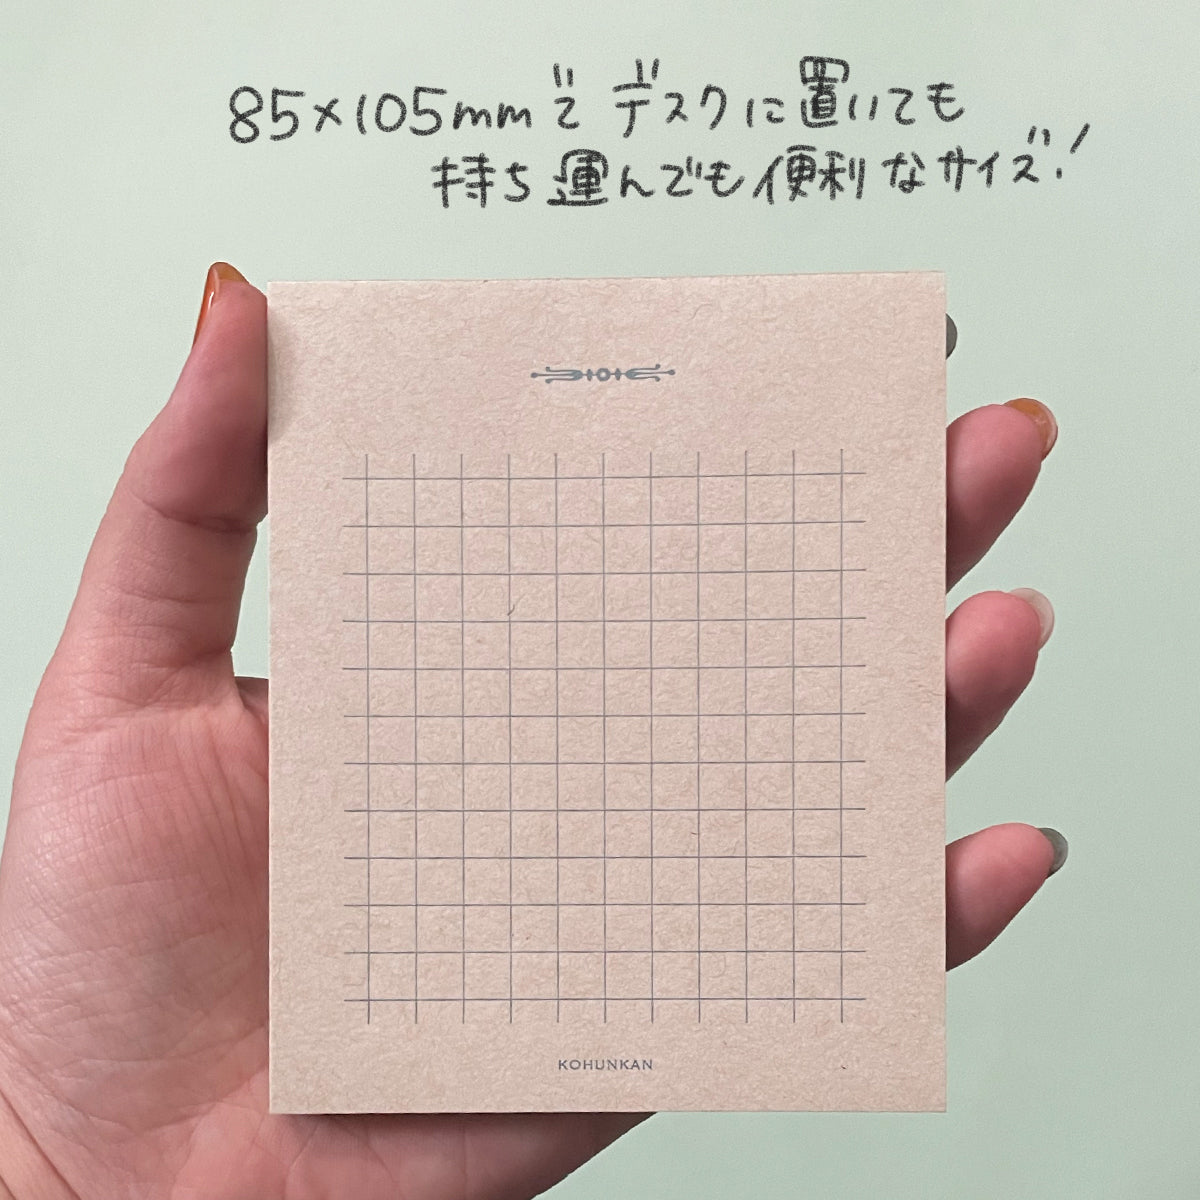 85×105mmで デスクに置いても
持ち運んでも便利なサイズ!
KOHUNKAN